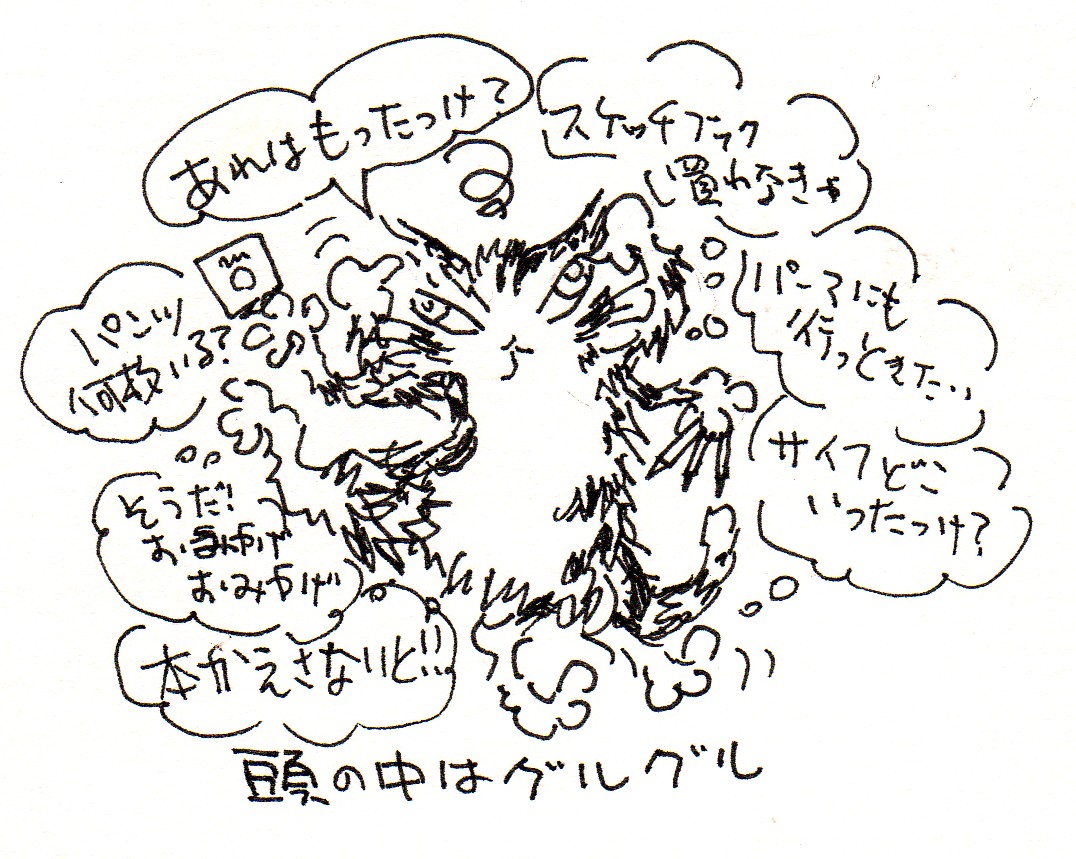 あれはもったっけ?
スケッチブック
買わなきゃ
パンツ
何枚いる?
パーマにも
行っときたい
サイフどこ
いったっけ?
そうだ!
おみやげ
おみやげ
本かえさないと!!
頭の中はグルグル